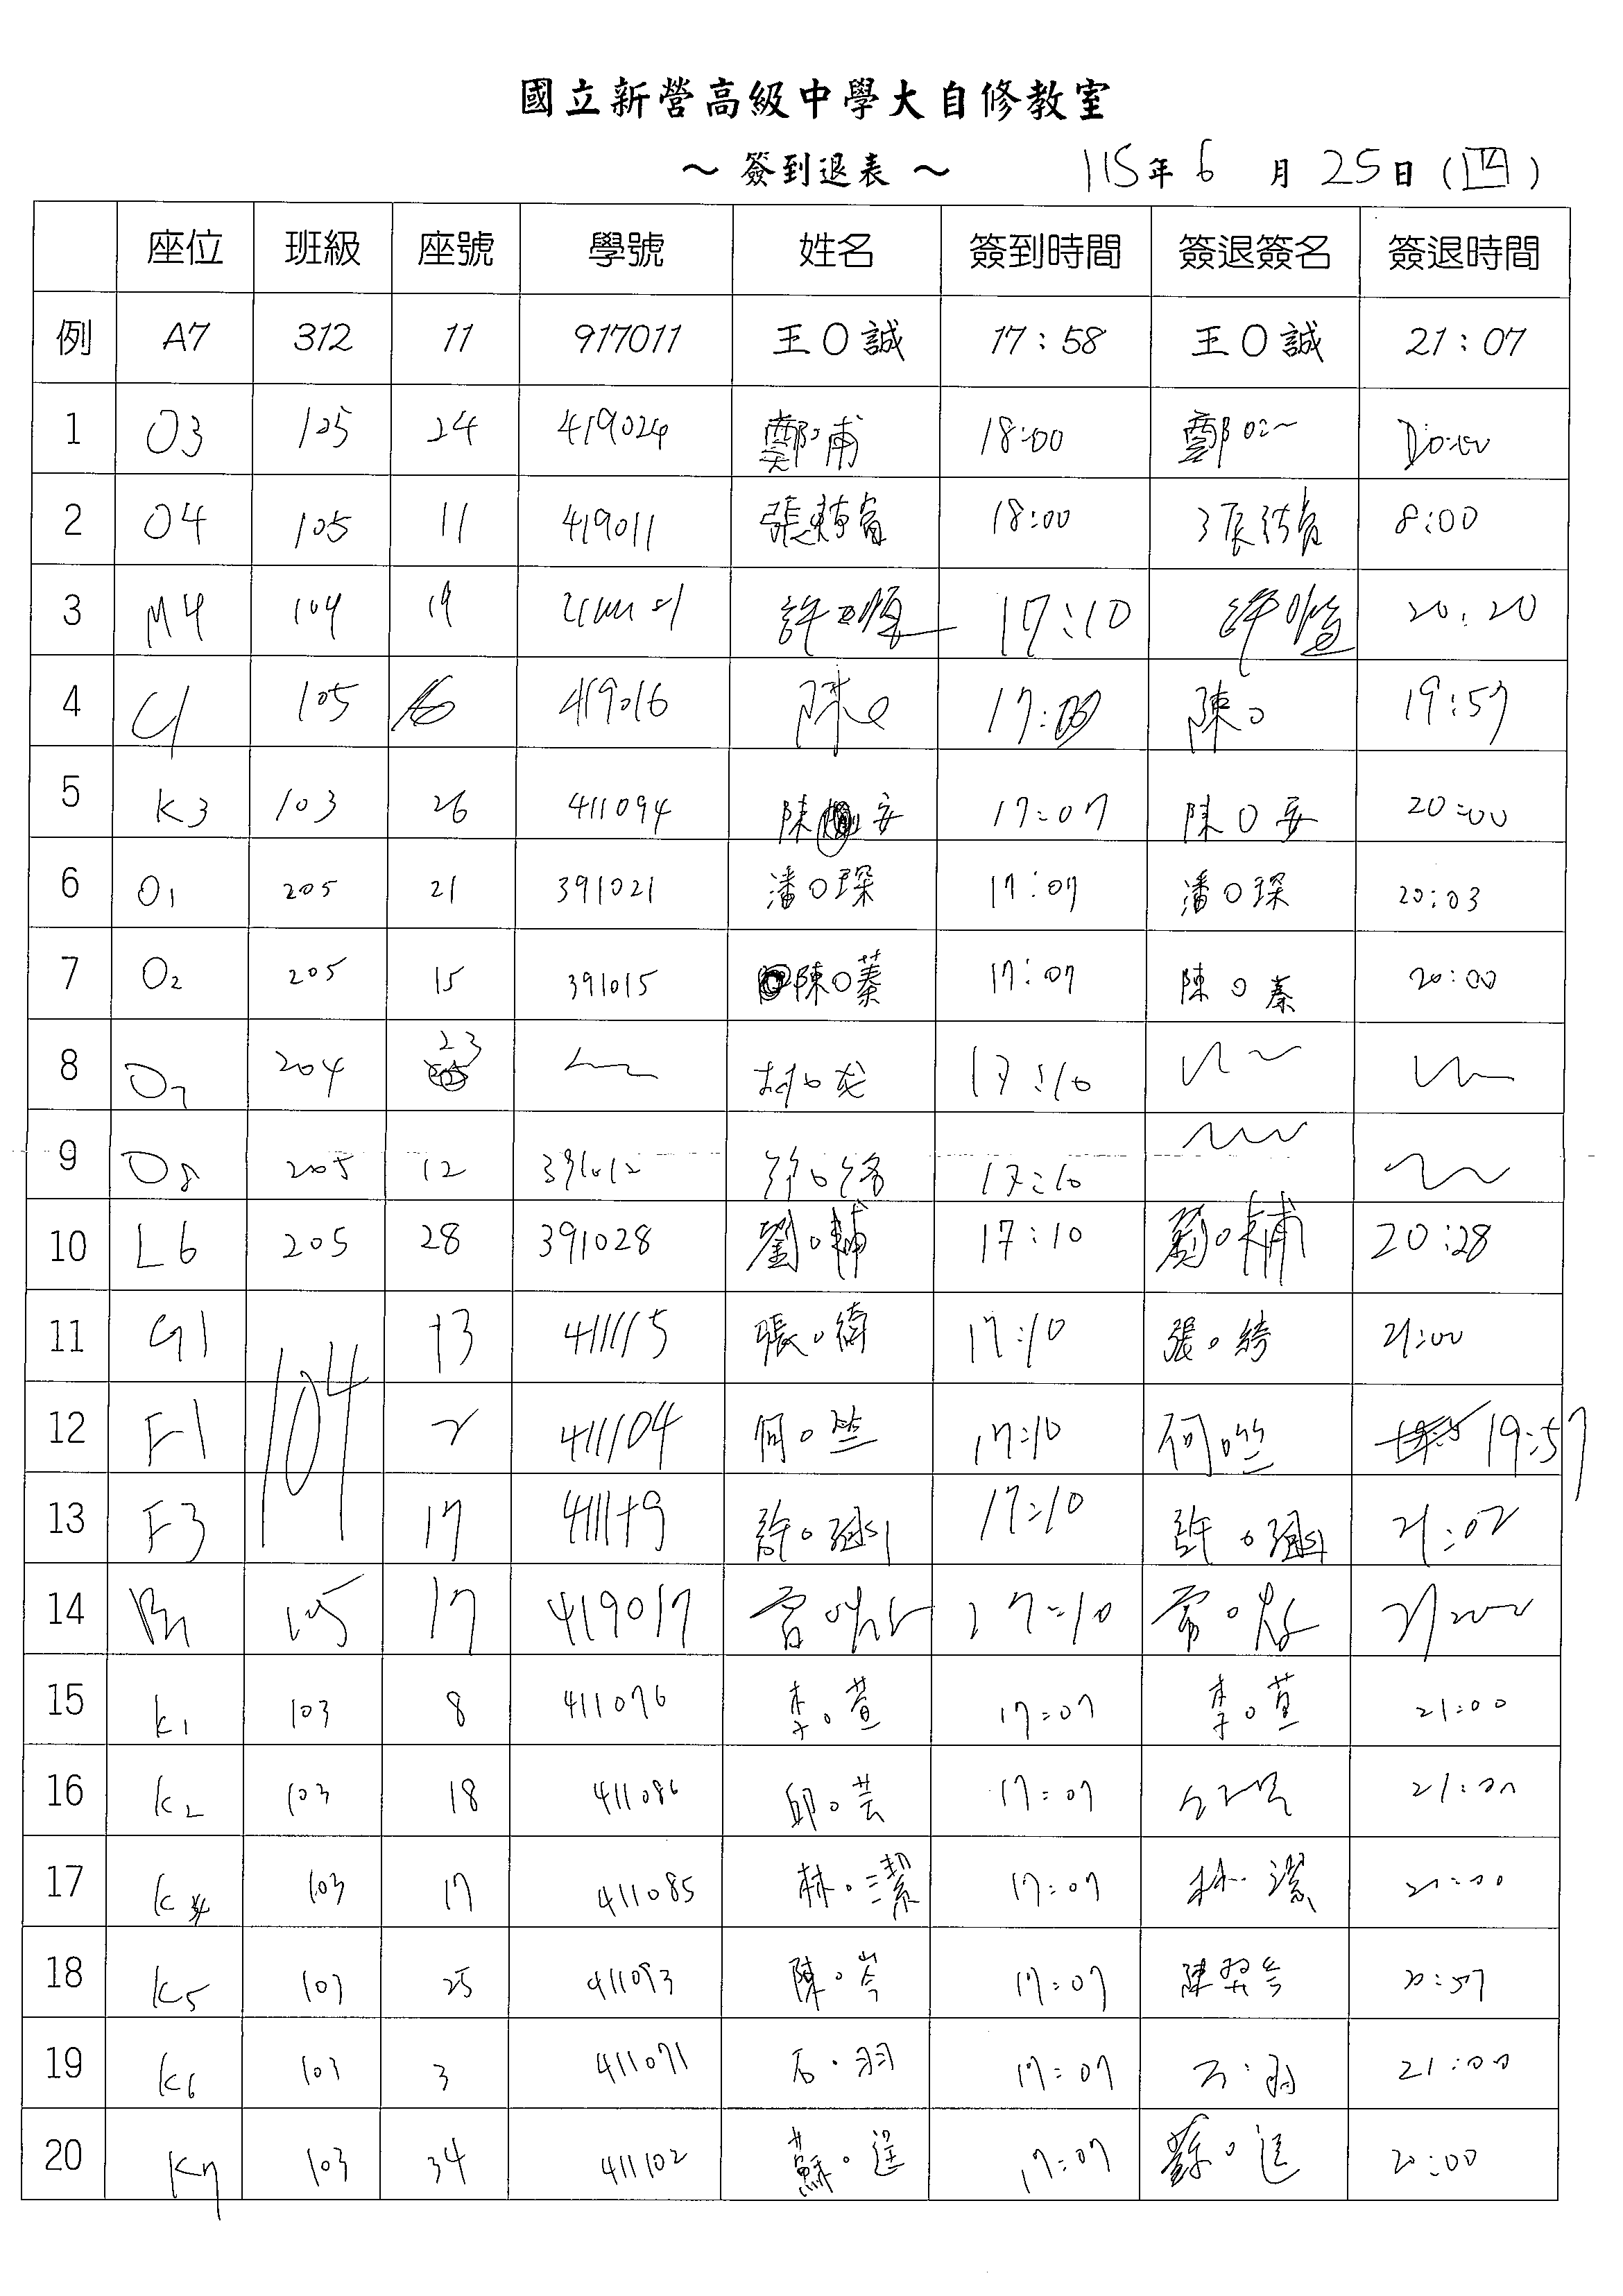 國立新營高級中學大自修教室
～ 簽到退表 ～ 115年 6 月 25日 (四)
座位 班級 座號 學號 姓名 簽到時間 簽退簽名 簽退時間
例 A7 312 11 917011 王〇誠 17:58 王〇誠 21:07
1 O3 105 24 419024 鄭〇甫 18:00 鄭
2 O4 105 11 419011 18:00 8:00
3 M4 104 19 許 17:10 許 20:20
4 105 16 419016 陳〇 陳〇 19:57
5 K3 103 26 411094 陳 安 17:07 陳〇安 20:00
6 O1 205 21 391021 潘〇琛 17:07 潘〇琛 20:03
7 O2 205 15 391015 陳〇蓁 17:07 陳〇蓁 20:00
8 O7 204 23 17:10
9 O8 205 12 391012 17:10
10 L6 205 28 391028 劉〇輔 17:10 劉〇輔 20:28
11 G1 13 411115 張〇 17:10 張〇 21:00
12 F1 104 2 411104 何〇竺 17:10 何〇竺 19:57
13 F3 17 411119 許〇 17:10 許〇 21:02
14 105 17 419017 17:10
15 K1 103 8 411076 李〇萱 17:07 李〇萱 21:00
16 K2 103 18 411086 邱〇芸 17:07 21:00
17 K4 103 17 411085 林〇潔 17:07 林〇潔 21:00
18 K5 103 25 411093 陳〇岑 17:07 陳
19 K6 103 3 411071 石〇羽 17:07 石〇羽 21:00
20 K7 103 34 411102 蘇〇 17:07 蘇〇 20:00